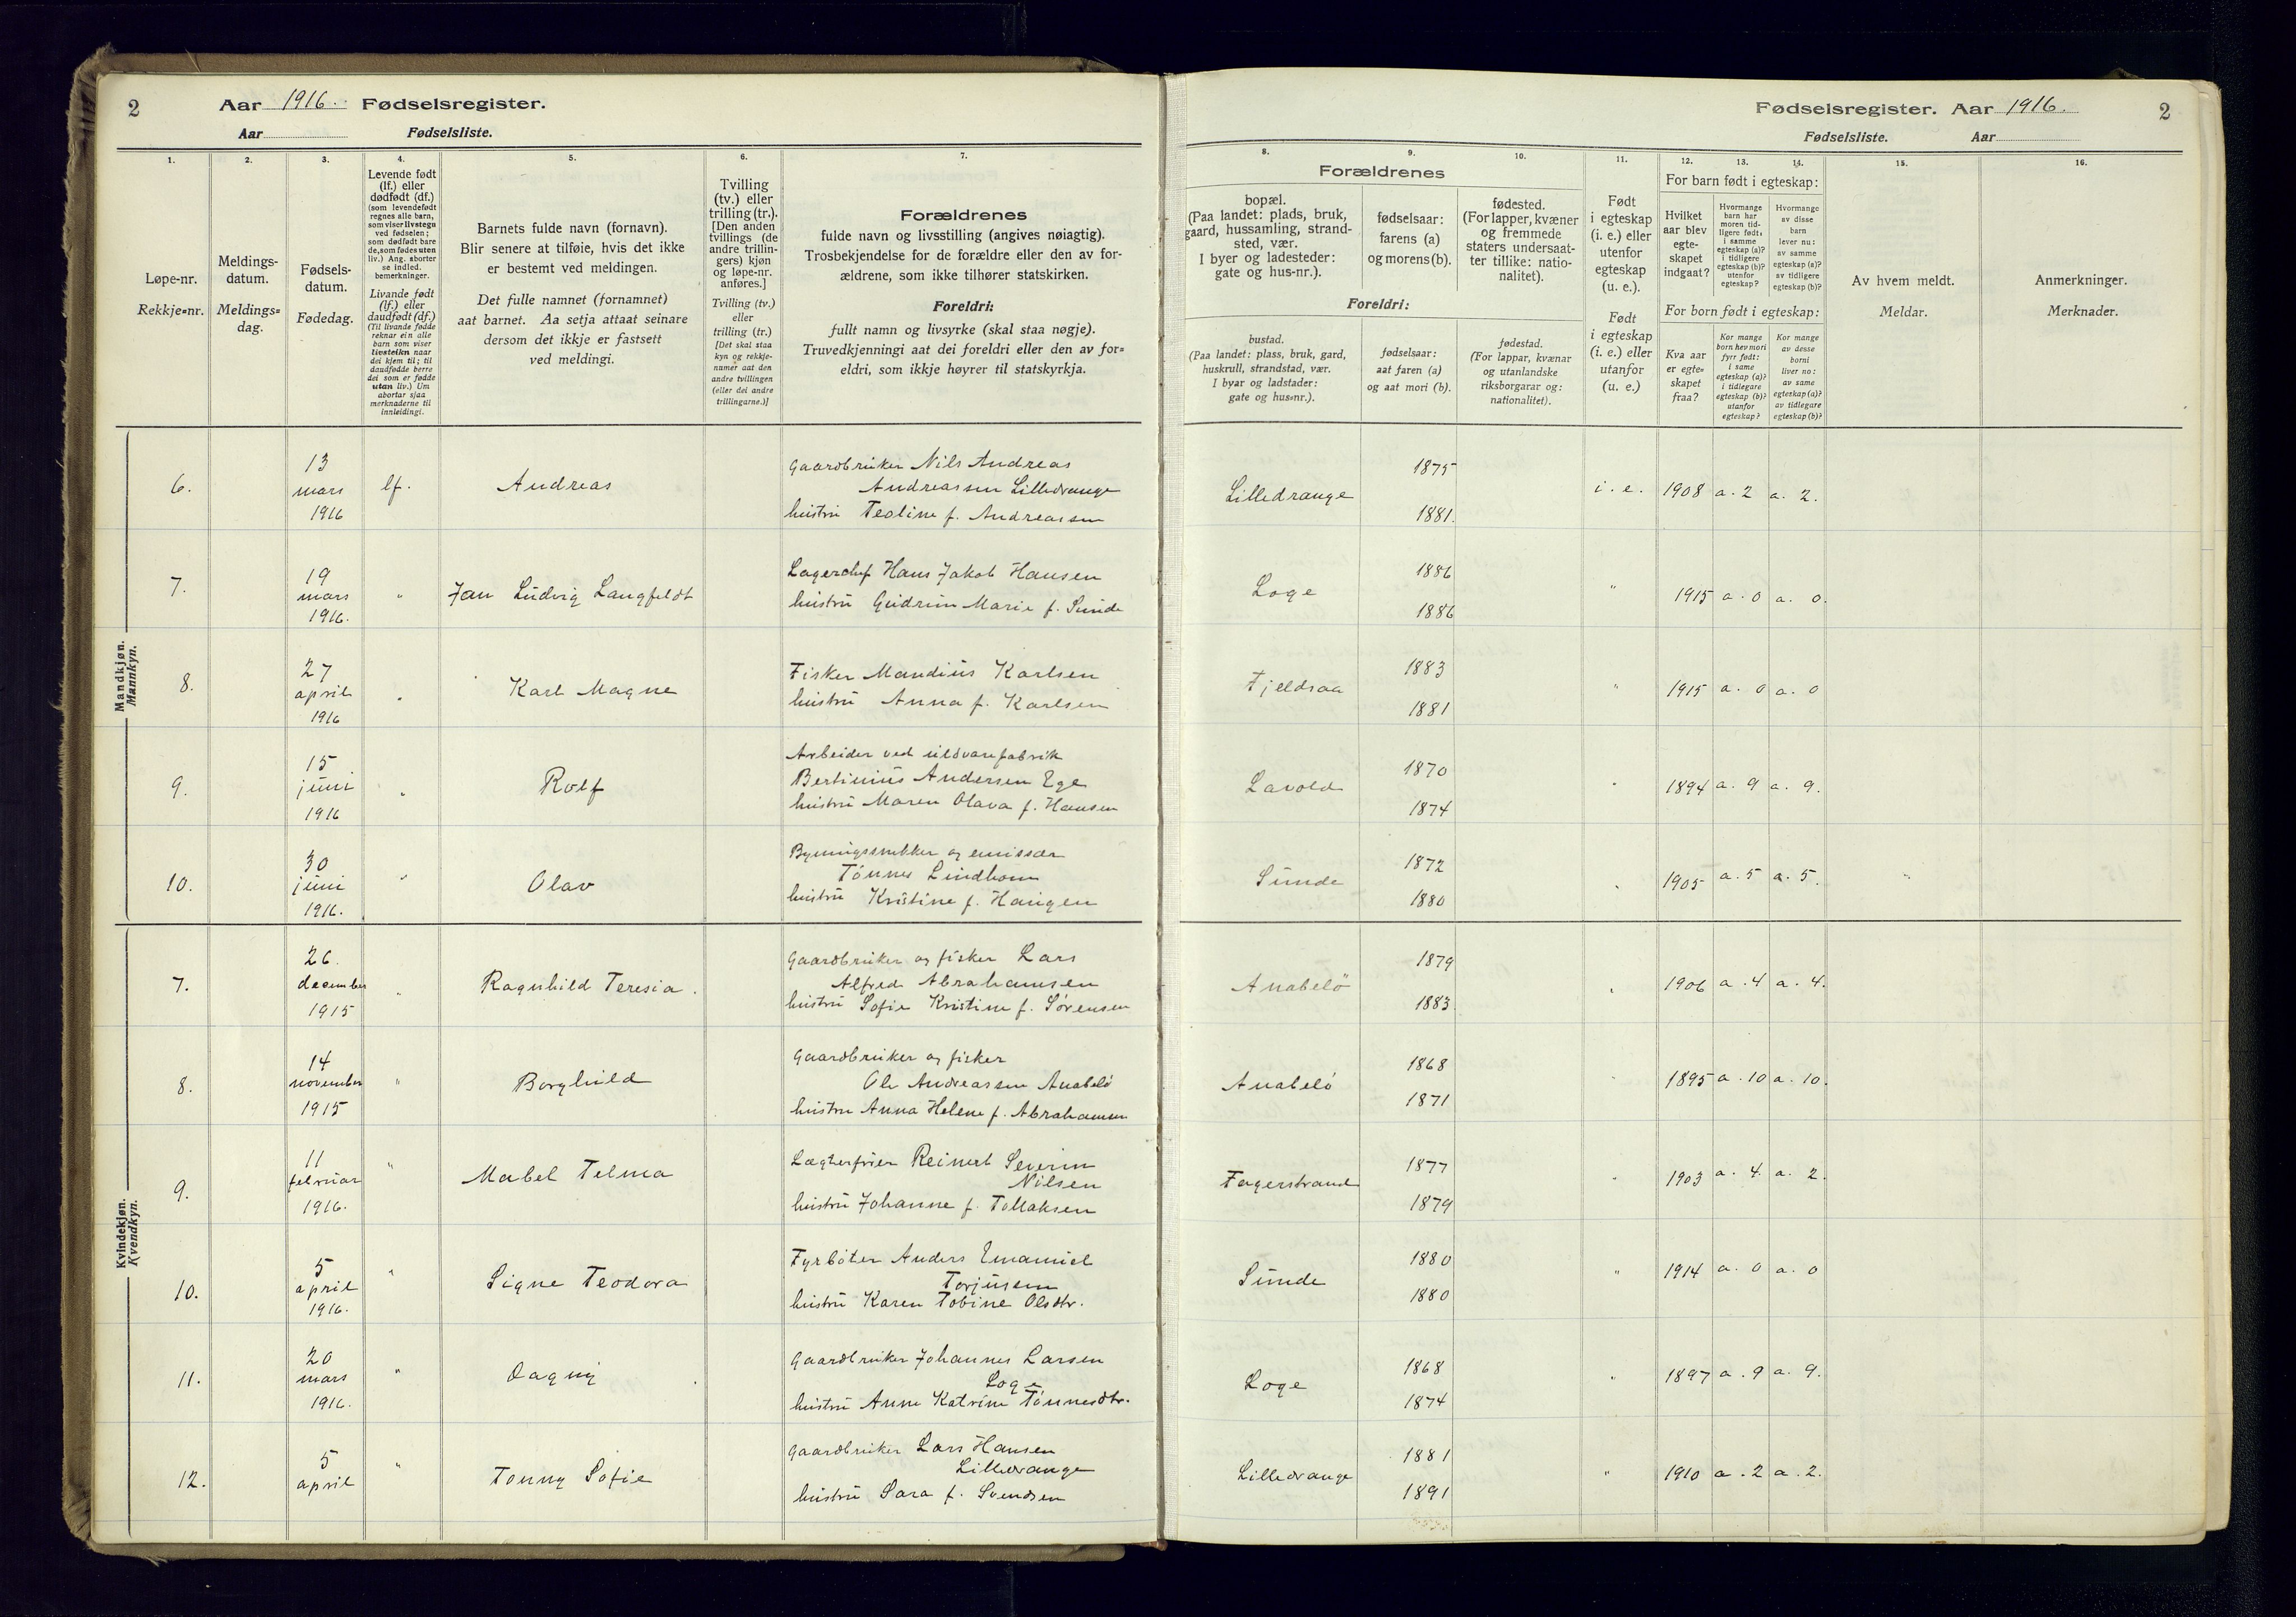 2 Aar 1916. Fødselsregister.
Aar Fødselsliste.
Fødselsregister. Aar 1916. 2
Fødselsliste. Aar
1. 2. 3. 4. 5. 6. 7.
Løpe-nr.
Rekkje=nr.
Meldings-
datum.
Meldings=
dag.
Fødsels-
datum.
Fødedag.
Levende født
(lf.) eller
dødfødt (df.)
(som levendefødt
regnes alle barn,
som viser livstegn
ved fødselen;
som dødfødt bare
de, som fødes uten
liv.) Ang. aborter
se indled.
bemerkninger.
Livande født
(lf.) eller
daudfødt (df.)
(Til livande fødde
reknar ein alle
barn som viser
livsteikn naar
dei kjem til; til
daudfødde berre
dei som er fødde
utan liv.) Um
abortar sjaa
merknaderne til
innleidingi.
Barnets fulde navn (fornavn).
Blir senere at tilføie, hvis det ikke
er bestemt ved meldingen.
Det fulle namnet (fornamnet)
aat barnet. Aa setja attaat seinare
dersom det ikkje er fastsett
ved meldingi.
Tvilling
(tv.) eller
trilling (tr.).
[Den anden
tvillings (de
andre trillin-
gers) kjøn
og løpe-nr.
anføres.]
Tvilling (tv.)
eller
trilling (tr.)
[Det skal staa
kyn og rekkje-
numer aat den
andre tvillingen
(eller dei andre
trillingarne.)]
Forældrenes
fulde navn og livsstilling (angives nøiagtig).
Trosbekjendelse for de forældre eller den av for-
ældrene, som ikke tilhører statskirken.
Foreldri:
fullt namn og livsyrke (skal staa nøgje).
Truvedkjenningi aat dei foreldri eller den av for=
eldri, som ikkje høyrer til statskyrkja.
8. 9. 10. 11. 12. 13. 14. 15. 16.
Forældrenes
bopæl.
(Paa landet: plads, bruk,
gaard, hussamling, strand-
sted, vær.
I byer og ladesteder:
gate og hus-nr.).
fødselsaar:
farens (a)
og morens (b).
fødested.
(For lapper, kvæner
og fremmede
staters undersaat-
ter tillike: natio-
nalitet).
Foreldri:
bustad.
(Paa landet: plass, bruk, gard,
huskrull, strandstad, vær.
I byar og ladstader:
gate og hus=nr.).
fødselsaar:
aat faren (a)
og aat mori (b).
fødestad.
(For lappar, kvænar
og utanlandske
riksborgarar og:
nationalitet).
Født
i egteskap
(i. e.) eller
utenfor
egteskap
(u. e.).
Født
i egteskap
(i. e.) eller
utanfor
(u. e.)
For barn født i egteskap:
Hvilket
aar blev
egte-
skapet
indgaat?
Hvormange
barn har
moren tid-
ligere født:
i samme
egteskap (a)?
i tidligere
egteskap (b)?
utenfor
egteskap?
Hvormange
av disse
barn
lever nu:
av samme
egteskap (a)?
av tidligere
egteskap (b)?
For born født i egteskap:
Kva aar
er egte=
skapet
fraa?
Kor mange
born hev mori
fyrr født:
i same
egteskap (a)?
i tidlegare
egteskap (b)?
utanfor
egteskap?
Kor mange
av desse
borni
liver no:
av same
egteskap (a)?
av tidlegare
egteskap (b)?
Av hvem meldt.
Meldar.
Anmerkninger.
Merknader.
Mandkjøn.
Mannkyn.
6. 13 mars 1916 lf. Andreas
Gaardbruker Nils Andreas
Andreassen Lilledrange
hustru Teoline f. Andreassen
Lilledrange 1875 1881. i. e. 1908 a. 2 a. 2.
7. 19 mars 1916. " Jan Ludvig Langfeldt
Lagerchef Hans Jakob Hansen
hustru Gudrun Marie f. Sunde
Loge 1886 1886 " 1915 a. 0 a. 0.
8. 27 april 1916 " Karl Magne
Fisker Mandius Karlsen
hustru Anna f. Karlsen
Fjeldsaa 1883 1881 " 1915 a. 0 a. 0
9. 15 juni 1916 " Rolf
Arbeider ved uldvarefabrik
Bertinius Andersen Ege
hustru Maren Olava f. Hansen
Lavold 1870 1874 " 1894 a. 9 a. 9.
10. 30 juni 1916. " Olav
Bygningssnekker og emissær
Tønnes Lindhom
hustru Kristine f. Haugen
Sunde 1872 1880 " 1905 a. 5 a. 5. "
Kvindekjøn.
Kvendkyn.
7. 26. december 1915 " Ragnhild Teresia.
Gaardbruker og fisker Lars
Alfred Abrahamsen
hustru Sofie Kristine f. Sørensen
Anabelö 1879 1883 " 1906 a. 4 a. 4.
8. 14 november 1915 " Borghild
Gaardbruker og fisker
Ole Andreassen Anabelö
hustru Anna Helene f. Abrahamsen
Anabelö 1868 1871 " 1895 a. 10 a. 10.
9. 11 februar 1916. " Mabel Telma
Reinert Severin
Nilsen
hustru Johanne f. Tollaksen
Fagerstrand 1877 1879 " 1903 a. 4. a. 2.
10. 5 april 1916. " Signe Teodora
Fyrbøter Anders Emanuel
Torjusen
hustru Karen Tobine Olsdtr.
Sunde 1880 1880 " 1914 a. 0 a. 0
11. 20 mars 1916. " Dagny
Gaardbruker Johannes Larsen
Loge
hustru Anne Katrine Tönnesdtr.
Loge 1868 1874 " 1897 a. 9 a. 9.
12. 5 april " Tonny Sofie
Gaardbruker Lars Hansen
Lilledrange
hustru Sara f. Svendsen
Lilledrange 1881 1891 " 1910 a. 2 a. 2.